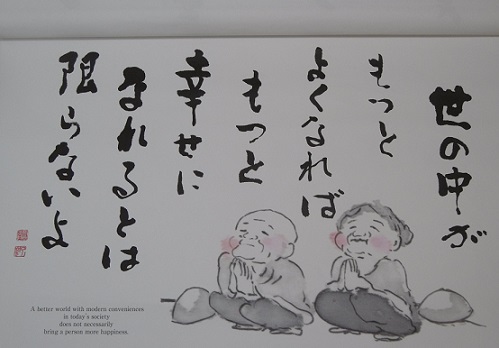 世の中が
もっと
よくなれば
もっと
幸せに
なれるとは
限らないよ
A better world with modern conveniences
in today's society
does not necessarily
bring a person more happiness.